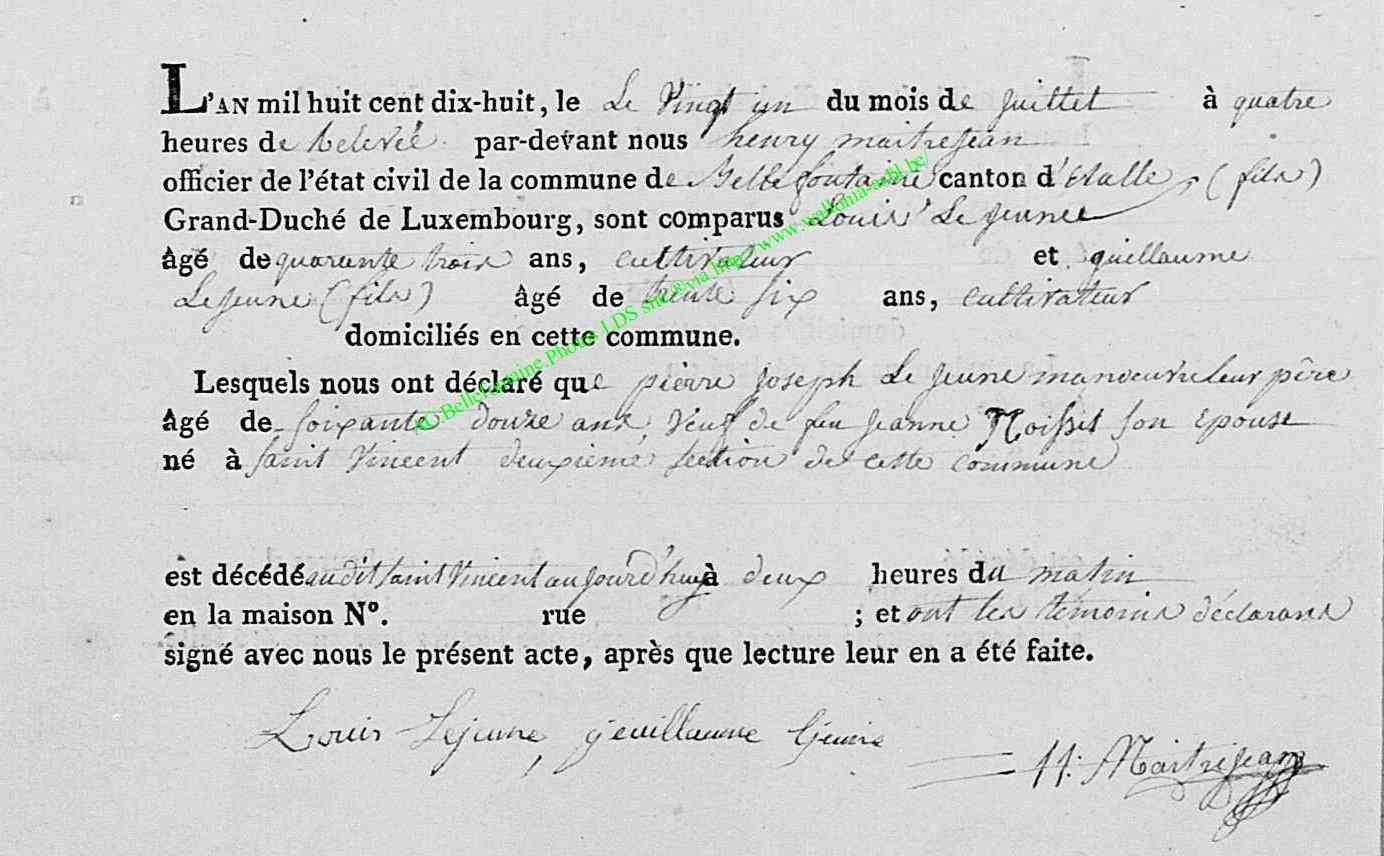 L'AN mil huit cent dix-huit, le Le Vingt un du mois de juillet à quatre
heures de Relevée par-devant nous henry maitrejean
officier de l'état civil de la commune de Bellefontaine canton d'Etalle, (fils)
Grand-Duché de Luxembourg, sont comparus Louis Le jeune
âgé de quarante trois ans, cultivateur et guillaume
Le jeune (fils) âgé de trente six ans, cultivateur
domiciliés en cette commune.
Lesquels nous ont déclaré que pierre Joseph Le jeune manoeuvre leur père
âgé de soixante douze ans, Veuf de feu jeanne son Epouse
né à saint Vincent deuxieme section de cette commune
est décédé audit saint Vincent aujourd'huy à deux heures du matin
en la maison Nº. rue ; et ont les témoins déclarans
signé avec nous le présent acte, après que lecture leur en a été faite.
Louis Lejeune, geuillaume H: Maitrejean